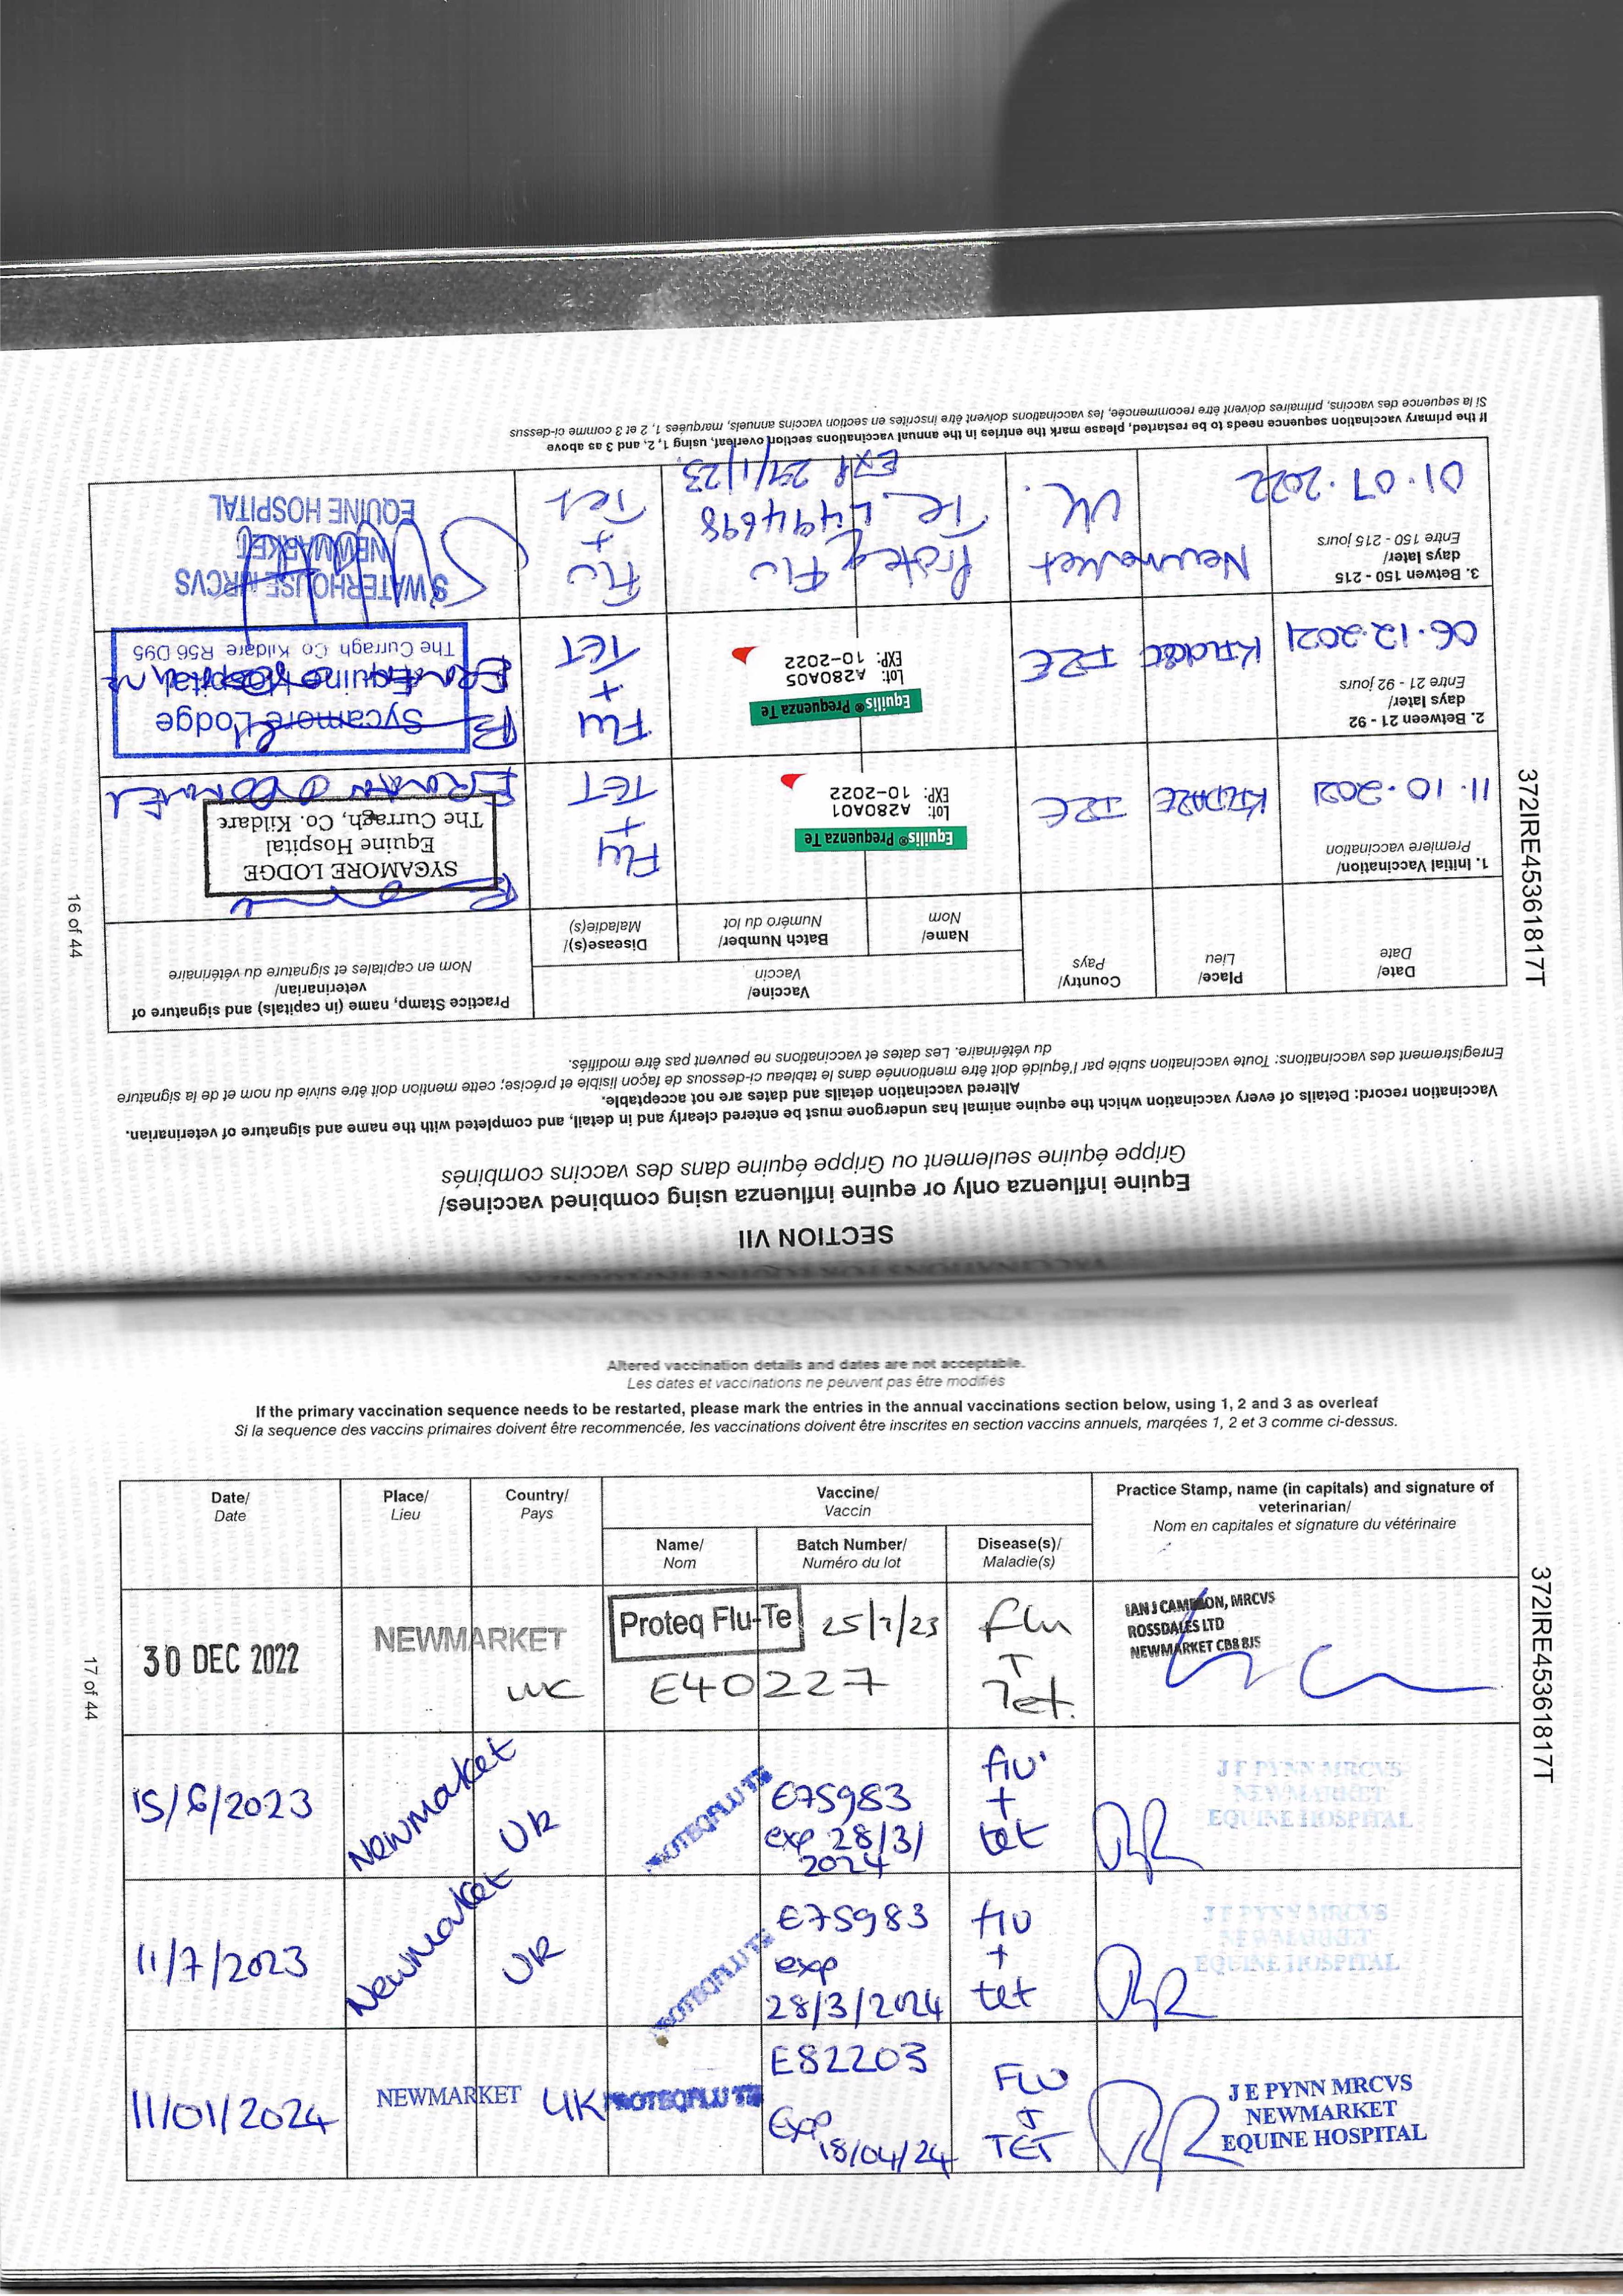 SECTION VII
Equine influenza only or equine influenza using combined vaccines/
Grippe équine seulement ou Grippe équine dans des vaccins combinés
Vaccination record: Details of every vaccination which the equine animal has undergone must be entered clearly and in detail, and completed with the name and signature of veterinarian.
Altered vaccination details and dates are not acceptable.
Enregistrement des vaccinations: Toute vaccination subie par l'équidé doit être mentionnée dans le tableau ci-dessous de façon lisible et précise; cette mention doit être suivie du nom et de la signature
du vétérinaire. Les dates et vaccinations ne peuvent pas être modifiés.
Date/
Date
Place/
Lieu
Country/
Pays
Vaccine/
Vaccin
Name/
Nom
Batch Number/
Numéro du lot
Disease(s)/
Maladie(s)
Practice Stamp, name (in capitals) and signature of
veterinarian/
Nom en capitales et signature du vétérinaire
1. Initial Vaccination/
Première vaccination
11.10.2021
KILDARE
IRE
Equilis® Prequenza Te
Lot: A280A01
EXP: 10-2022
Flu
+
TET
SYCAMORE LODGE
Equine Hospital
The Curragh, Co. Kildare
2. Between 21 - 92
days later/
Entre 21 - 92 jours
06.12.2021
Kildare
IRE
Equilis® Prequenza Te
Lot: A280A05
EXP: 10-2022
Flu
+
TET
Sycamore Lodge
Equine Hospital
The Curragh Co Kildare R56 D95
3. Betwen 150 - 215
days later/
Entre 150 - 215 jours
01.07.2022
Newmarket
UK.
Proteq Flu
Te. L494698
Exp 27/1/23.
Flu
+
Tet
S WATERHOUSE MRCVS
NEWMARKET
EQUINE HOSPITAL
If the primary vaccination sequence needs to be restarted, please mark the entries in the annual vaccinations section overleaf, using 1, 2, and 3 as above
Si la sequence des vaccins, primaires doivent être recommencée, les vaccinations doivent être inscrites en section vaccins annuels, marquées 1, 2 et 3 comme ci-dessus
16 of 44
372IRE45361817T
Altered vaccination details and dates are not acceptable.
Les dates et vaccinations ne peuvent pas être modifiés
If the primary vaccination sequence needs to be restarted, please mark the entries in the annual vaccinations section below, using 1, 2 and 3 as overleaf
Si la sequence des vaccins primaires doivent être recommencée, les vaccinations doivent être inscrites en section vaccins annuels, marqées 1, 2 et 3 comme ci-dessus.
Date/
Date
Place/
Lieu
Country/
Pays
Vaccine/
Vaccin
Name/
Nom
Batch Number/
Numéro du lot
Disease(s)/
Maladie(s)
Practice Stamp, name (in capitals) and signature of
veterinarian/
Nom en capitales et signature du vétérinaire
30 DEC 2022
NEWMARKET
UK
Proteq Flu-Te
25/7/23
E40227
Flu
+
Tet.
IAN J CAMERON, MRCVS
ROSSDALES LTD
NEWMARKET CB8 8JS
15/6/2023
Newmarket
UK
PROTEQFLU TE
E75983
exp 28/3/
2024
flu
+
tet
J E PYNN MRCVS
NEWMARKET
EQUINE HOSPITAL
11/7/2023
Newmarket
UK
PROTEQFLU TE
E75983
exp
28/3/2024
flu
+
tet
J E PYNN MRCVS
NEWMARKET
EQUINE HOSPITAL
11/01/2024
NEWMARKET
UK
PROTEQFLU TE
E82203
Exp
18/04/24
FLU
+
TET
J E PYNN MRCVS
NEWMARKET
EQUINE HOSPITAL
17 of 44
372IRE45361817T